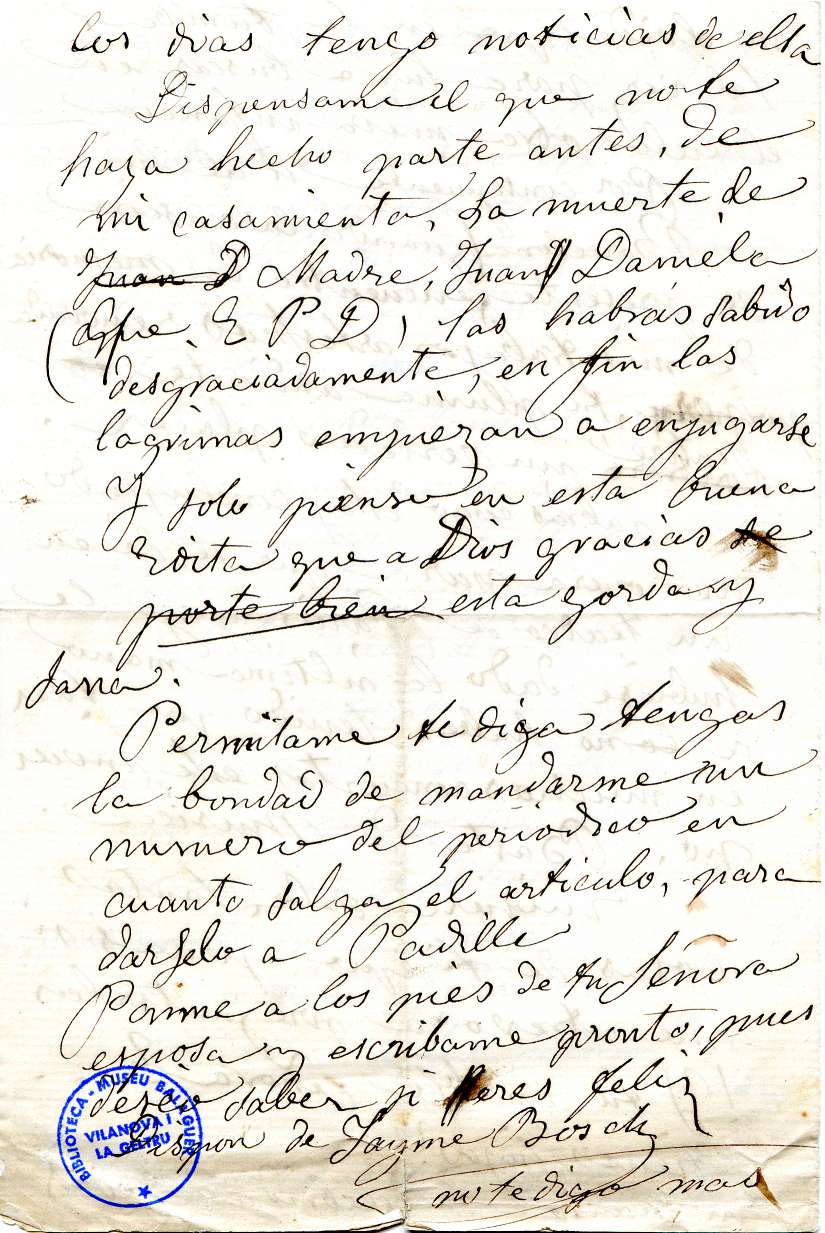 los dias tengo noticias de ella
Dispensame el que no te
haya hecho parte antes, de
mi casamiento, La muerte de
Juan D Madre, Juan y Daniela
(Q que. E P D) las habrás sabido
desgraciadamente, en fin las
lagrimas empiezan a enjugarse
Y solo pienso en esta buena
que a Dios gracias se
porte bien esta gorda y
sana.
Permitame te diga tengas
la bondad de mandarme un
numero del periodico en
cuanto salga el articulo, para
darselo a Padilla
Ponme a los pies de tu Señora
esposa y escribame pronto, pues
deseo saber si eres feliz
Dispon de Jayme Bosch
no te digo mas
BIBLIOTECA - MUSEU BALAGUER
VILANOVA I
LA GELTRU